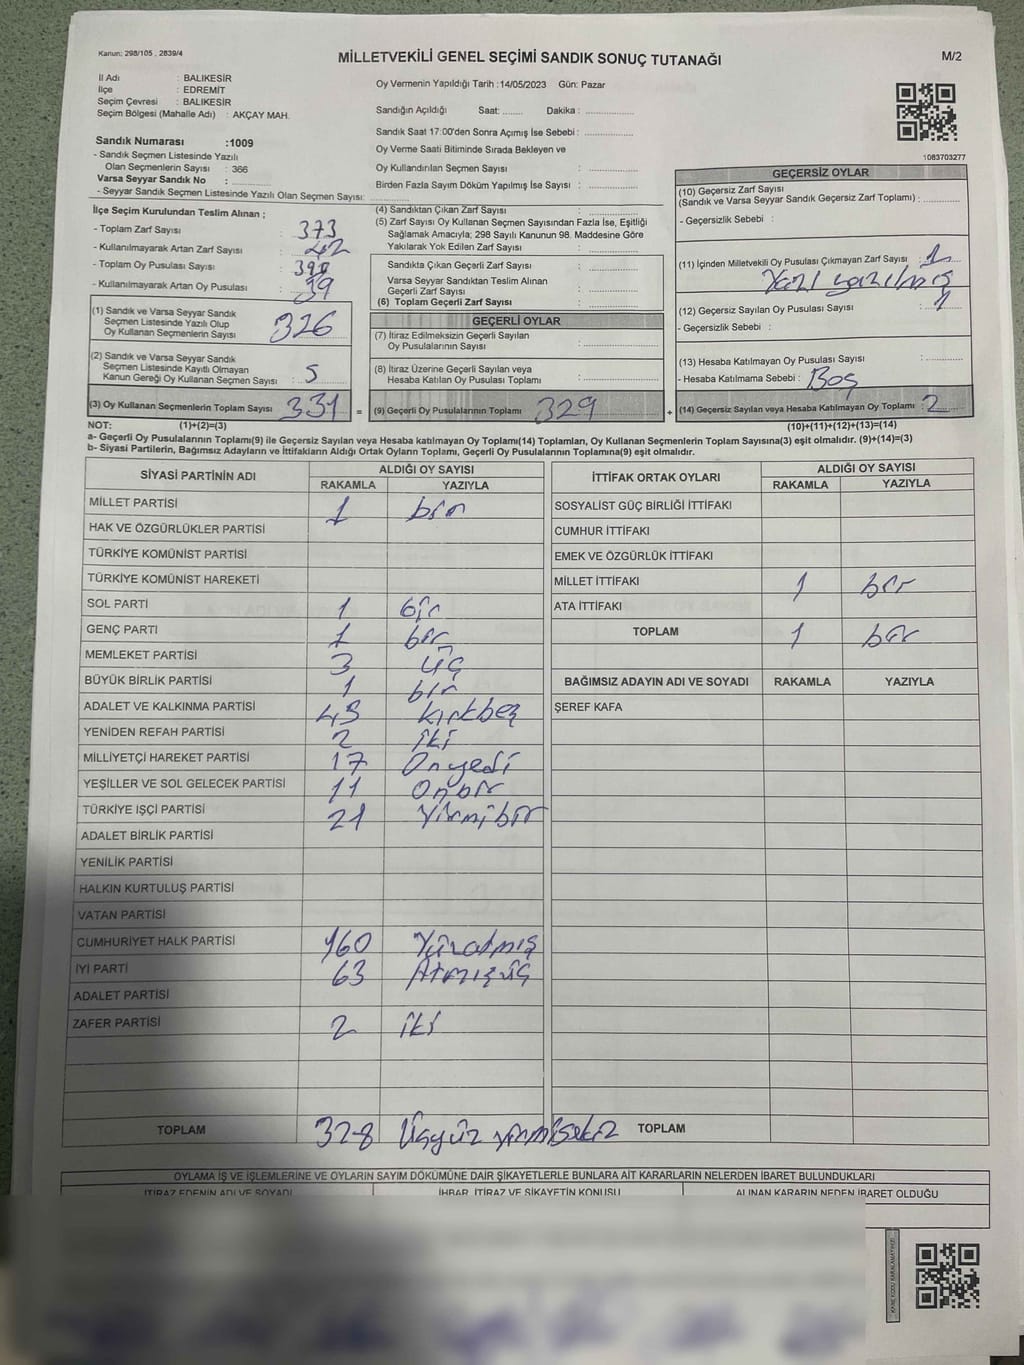 Kanun: 298/105 , 2839/4
MİLLETVEKİLİ GENEL SEÇİMİ SANDIK SONUÇ TUTANAĞI
M/2
İl Adı : BALIKESİR
İlçe : EDREMİT
Seçim Çevresi : BALIKESİR
Seçim Bölgesi (Mahalle Adı) : AKÇAY MAH.
Oy Vermenin Yapıldığı Tarih :14/05/2023 Gün: Pazar
Sandığın Açıldığı Saat: ........ Dakika : ..................
Sandık Saat 17:00'den Sonra Açımış İse Sebebi : ..................
Oy Verme Saati Bitiminde Sırada Bekleyen ve
Oy Kullandırılan Seçmen Sayısı : ..................
Birden Fazla Sayım Döküm Yapılmış İse Sayısı : ..................
1083703277
Sandık Numarası :1009
- Sandık Seçmen Listesinde Yazılı
Olan Seçmenlerin Sayısı : 366
Varsa Seyyar Sandık No : ..................
- Seyyar Sandık Seçmen Listesinde Yazılı Olan Seçmen Sayısı: ..................
İlçe Seçim Kurulundan Teslim Alınan ;
- Toplam Zarf Sayısı : 373
- Kullanılmayarak Artan Zarf Sayısı : 42
- Toplam Oy Pusulası Sayısı :
- Kullanılmayarak Artan Oy Pusulası : 39
(1) Sandık ve Varsa Seyyar Sandık
Seçmen Listesinde Yazılı Olup
Oy Kullanan Seçmenlerin Sayısı : 326
(2) Sandık ve Varsa Seyyar Sandık
Seçmen Listesinde Kayıtlı Olmayan
Kanun Gereği Oy Kullanan Seçmen Sayısı : 5
(3) Oy Kullanan Seçmenlerin Toplam Sayısı 331 =
(4) Sandıktan Çıkan Zarf Sayısı : ..................
(5) Zarf Sayısı Oy Kullanan Seçmen Sayısından Fazla İse, Eşitliği
Sağlamak Amacıyla; 298 Sayılı Kanunun 98. Maddesine Göre
Yakılarak Yok Edilen Zarf Sayısı : ..................
Sandıkta Çıkan Geçerli Zarf Sayısı : ..................
Varsa Seyyar Sandıktan Teslim Alınan
Geçerli Zarf Sayısı : ..................
(6) Toplam Geçerli Zarf Sayısı : ..................
GEÇERLİ OYLAR
(7) İtiraz Edilmeksizin Geçerli Sayılan
Oy Pusulalarının Sayısı : ..................
(8) İtiraz Üzerine Geçerli Sayılan veya
Hesaba Katılan Oy Pusulası Toplamı : ..................
(9) Geçerli Oy Pusulalarının Toplamı : 329 +
GEÇERSİZ OYLAR
(10) Geçersiz Zarf Sayısı
(Sandık ve Varsa Seyyar Sandık Geçersiz Zarf Toplamı) : ..................
- Geçersizlik Sebebi :
(11) İçinden Milletvekili Oy Pusulası Çıkmayan Zarf Sayısı : 1
Yazı yazılmış
(12) Geçersiz Sayılan Oy Pusulası Sayısı : 1
- Geçersizlik Sebebi :
(13) Hesaba Katılmayan Oy Pusulası Sayısı : ..................
- Hesaba Katılmama Sebebi : Boş
(14) Geçersiz Sayılan veya Hesaba Katılmayan Oy Toplamı : 2
NOT: (1)+(2)=(3)
(10)+(11)+(12)+(13)=(14)
a- Geçerli Oy Pusulalarının Toplamı(9) ile Geçersiz Sayılan veya Hesaba katılmayan Oy Toplamı(14) Toplamları, Oy Kullanan Seçmenlerin Toplam Sayısına(3) eşit olmalıdır. (9)+(14)=(3)
b- Siyasi Partilerin, Bağımsız Adayların ve İttifakların Aldığı Ortak Oyların Toplamı, Geçerli Oy Pusulalarının Toplamına(9) eşit olmalıdır.
SİYASİ PARTİNİN ADI ALDIĞI OY SAYISI
RAKAMLA YAZIYLA
MİLLET PARTİSİ 1 bir
HAK VE ÖZGÜRLÜKLER PARTİSİ
TÜRKİYE KOMÜNİST PARTİSİ
TÜRKİYE KOMÜNİST HAREKETİ
SOL PARTİ 1 bir
GENÇ PARTİ 1 bir
MEMLEKET PARTİSİ 3 üç
BÜYÜK BİRLİK PARTİSİ 1 bir
ADALET VE KALKINMA PARTİSİ 45 kırkbeş
YENİDEN REFAH PARTİSİ 2 iki
MİLLİYETÇİ HAREKET PARTİSİ 17 Onyedi
YEŞİLLER VE SOL GELECEK PARTİSİ 11 Onbir
TÜRKİYE İŞÇİ PARTİSİ 21 Yirmibir
ADALET BİRLİK PARTİSİ
YENİLİK PARTİSİ
HALKIN KURTULUŞ PARTİSİ
VATAN PARTİSİ
CUMHURİYET HALK PARTİSİ 160 Yüzatmış
İYİ PARTİ 63 Atmışüç
ADALET PARTİSİ
ZAFER PARTİSİ 2 iki
TOPLAM 328 Üçyüz yirmisekiz
İTTİFAK ORTAK OYLARI ALDIĞI OY SAYISI
RAKAMLA YAZIYLA
SOSYALİST GÜÇ BİRLİĞİ İTTİFAKI
CUMHUR İTTİFAKI
EMEK VE ÖZGÜRLÜK İTTİFAKI
MİLLET İTTİFAKI 1 bir
ATA İTTİFAKI
TOPLAM 1 bir
BAĞIMSIZ ADAYIN ADI VE SOYADI RAKAMLA YAZIYLA
ŞEREF KAFA
TOPLAM
OYLAMA İŞ VE İŞLEMLERİNE VE OYLARIN SAYIM DÖKÜMÜNE DAİR ŞİKAYETLERLE BUNLARA AİT KARARLARIN NELERDEN İBARET BULUNDUKLARI
İTİRAZ EDENİN ADI VE SOYADI İHBAR, İTİRAZ VE ŞİKAYETİN KONUSU ALINAN KARARIN NEDEN İBARET OLDUĞU